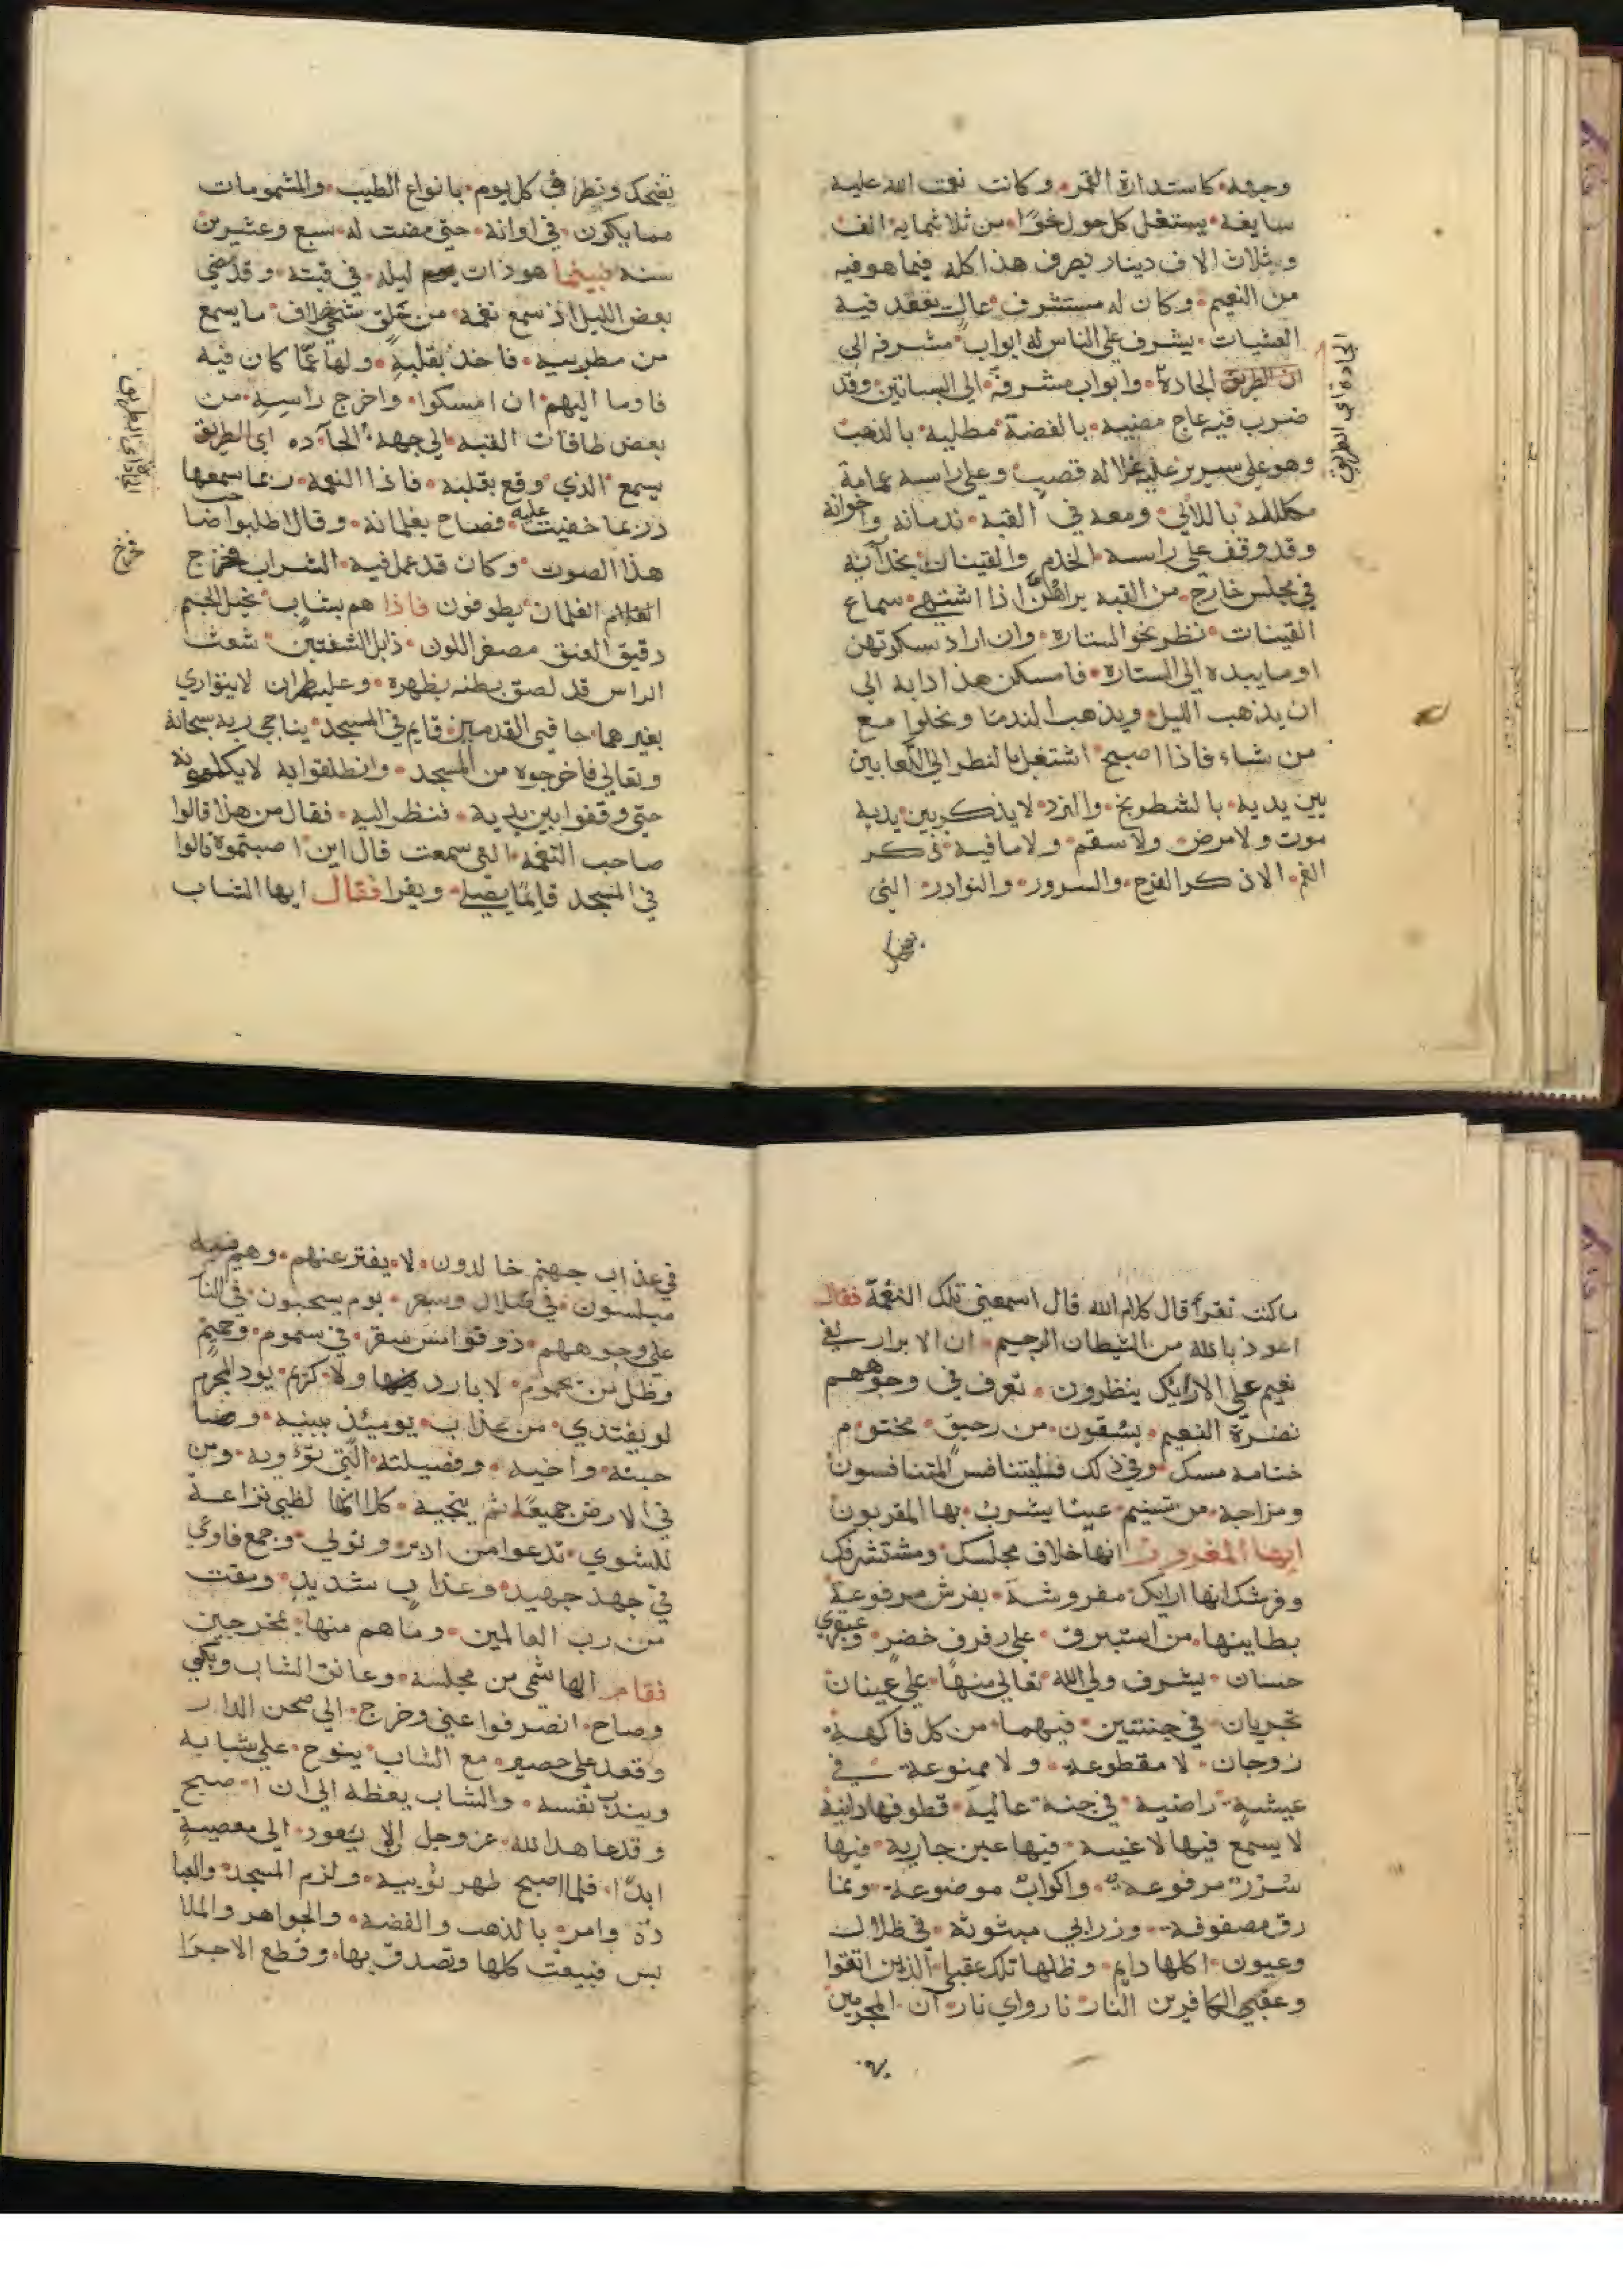 وجهه كاستدارة القمر وكانت نعمت الله عليه
سابغة يستغل كل حول نحوًا من ثلاثمايه الف
وثلاث الاف دينار يصرف هذا كله فيما هو فيه
من النعيم وكان له مستشرف عال يقعد فيه
العشيات يشرف علي الناس له ابواب مشرفه الي
الطريق الجادة وابواب مشرفة الي البساتين وقد
ضرب فيه عاج مضببه بالفضة مطليه بالذهب
وهو علي سرير عليه غلاله قصب وعلي راسه عمامة
مكللة باللالي ومعه في القبه ندمانه واخوانه
وقد وقف علي راسه الخدم والقينات بحذآئه
في مجلس خارج من القبه يراهن اذا اشتهي سماع
القينات نظر نحو الستاره وان اراد سكوتهن
اوما بيده الي الستاره فامسكن هذا دابه الي
ان يذهب الليل ويذهب الندما ويخلوا مع
من شاء فاذا اصبح اشتغل بالنظر الي اللعابين
بين يديه بالشطرنج والنرد لا يذكر بين يديه
موت ولا مرض ولا سقم ولا ما فيه ذكر
الغم الا ذكر الفرح والسرور والنوادر التي
الجادة اي الطريق
تضحك ويطرف كل يوم بانواع الطيب والمشمومات
مما يكون في اوانه حتي مضت له سبع وعشرين
سنه فبينما هو ذات ليله في قبته وقد مضي
بعض الليل اذ سمع نغمه من حلق شجي خلاف ما يسمع
من مطربيه فاخذ بقلبه ولها عما كان فيه
فاوما اليهم ان امسكوا واخرج راسه من
بعض طاقات القبه الي جهة الجآده اي الطريق
يسمع الذي وقع بقلبه فاذا النغمه ربما سمعها
وربما خفيت عليه فصاح بغلمانه وقال اطلبوا صاحب
هذا الصوت وكان قد عمل فيه الشراب فخرج
الغلمان يطوفون فاذا هم بشاب نحيل الجسم
دقيق العنق مصفر اللون ذابل الشفتين شعث
الراس قد لصق بطنه بظهره وعليه طمران لا يتواري
بغيرهما حافي القدمين قايم في المسجد يناجي ربه سبحانه
وتعالي فاخرجوه من المسجد وانطلقوا به لا يكلمونه
حتي وقفوا بين يديه فنظر اليه فقال من هذا قالوا
صاحب النغمه التي سمعت قال اين اصبتموه قالوا
في المسجد قايمًا يصلي ويقرا فقال ايها الشاب
خرج
ما كنت تقرأ قال كلام الله قال اسمعني تلك النغمة فقال
اعوذ بالله من الشيطان الرجيم ان الابرار لفي
نعيم علي الارايك ينظرون تعرف في وجوههم
نضرة النعيم يسقون من رحيق مختوم
ختامه مسك وفي ذلك فليتنافس المتنافسون
ومزاجه من تسنيم عينا يشرب بها المقربون
ايها المغرور انها خلاف مجلسك ومستشرفك
وفرشك انها ارايك مفروشة بفرش مرفوعة
بطاينها من استبرق علي رفرف خضر وعبقري
حسان يشرف ولي الله تعالي منها علي عينان
تجريان في جنتين فيهما من كل فاكهة
زوجان لا مقطوعه ولا ممنوعة في
عيشة راضيه في جنة عالية قطوفها دانية
لا يسمع فيها لاغيه فيها عين جارية فيها
سرر مرفوعه واكواب موضوعة ونما
رق مصفوفه وزرابي مبثوثه في ظلال
وعيون اكلها دايم وظلها تلك عقبي الذين اتقوا
وعقبي الكافرين النار نار واي نار ان المجرمين
في عذاب جهنم خالدون لا يفتر عنهم وهم فيه
مبلسون في ضلال وسعر يوم يسحبون في النا
علي وجوههم ذوقوا مس سقر في سموم وحميم
وظل من يحموم لا بارد ولا كريم يود المجرم
لو يفتدي من عذاب يوميئذ ببنيه وصا
حبته واخيه وفصيلته التي تؤويه ومن
في الارض جميعًا ثم ينجيه كلا انها لظي نزاعة
للشوي تدعوا من ادبر وتولي وجمع فاوعي
في جهد جهيد وعذاب شديد ومقت
من رب العالمين وما هم منها بمخرجين
فقام الهاشمي من مجلسه وعانق الشاب وبكي
وصاح انصرفوا عني وخرج الي صحن الدار
وقعد علي حصير مع الشاب ينوح علي شبابه
ويندب نفسه والشاب يعظه الي ان اصبح
وقد عاهد الله عز وجل الا يعود الي معصية
ابدًا فلما اصبح ظهر توبيه ولزم المسجد والعبا
دة وامر بالذهب والفضه والجواهر والملا
بس فبيعت كلها وتصدق بها وقطع الاجرا